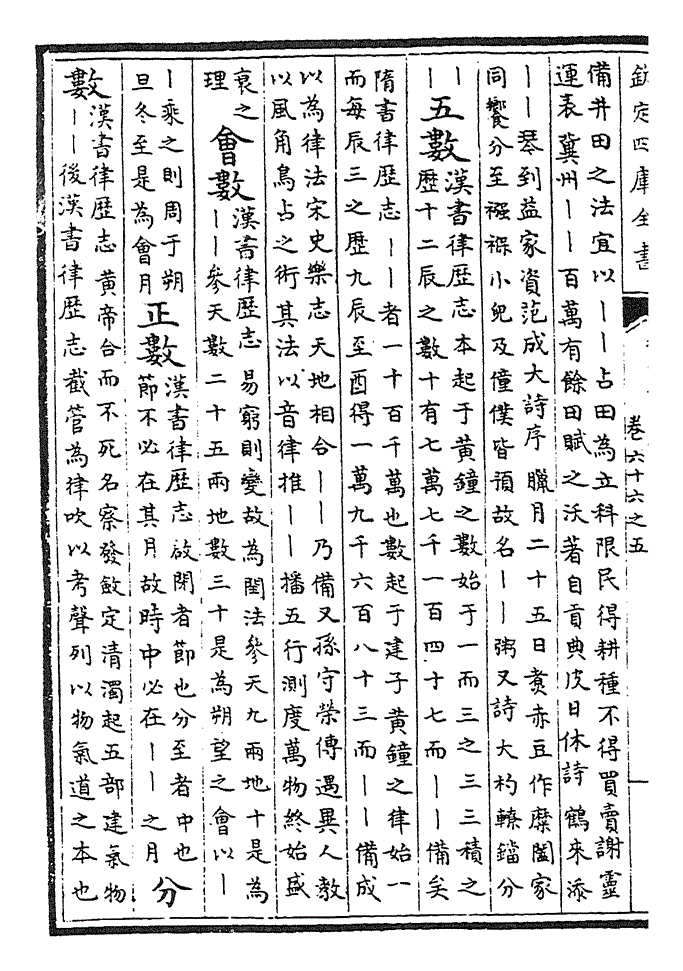 欽定四庫全書
卷六十六之五
備井田之法宜以||占田為立科限民得耕種不得買賣謝靈
運表冀州||百萬有餘田賦之沃著自貢典皮日休詩 鶴來添
||琴到益家資范成大詩序 臘月二十五日煑赤豆作糜闔家
同饗分至襁褓小兒及僮僕皆預故名||粥又詩 大杓轑鐺分
|
|
五數
漢書律歷志本起于黃鐘之數始于一而三之三三積之
歷十二辰之數十有七萬七千一百四十七而||備矣
隋書律歷志||者一十百千萬也數起于建子黃鐘之律始一
而每辰三之歷九辰至酉得一萬九千六百八十三而||備成
以為律法宋史樂志天地相合||乃備又孫守榮傳遇異人教
以風角鳥占之術其法以音律推||播五行測度萬物終始盛
衰之
理
會數
漢書律歷志 易窮則變故為閏法參天九兩地十是為
||參天數二十五兩地數三十是為朔望之會以|
|乘之則周于朔
旦冬至是為會月
正數
漢書律歷志啟閉者節也分至者中也
節不必在其月故時中必在||之月
分
數
漢書律歷志 黃帝合而不死名察發斂定清濁起五部建氣物
||後漢書律歷志截管為律吹以考聲列以物氣道之本也